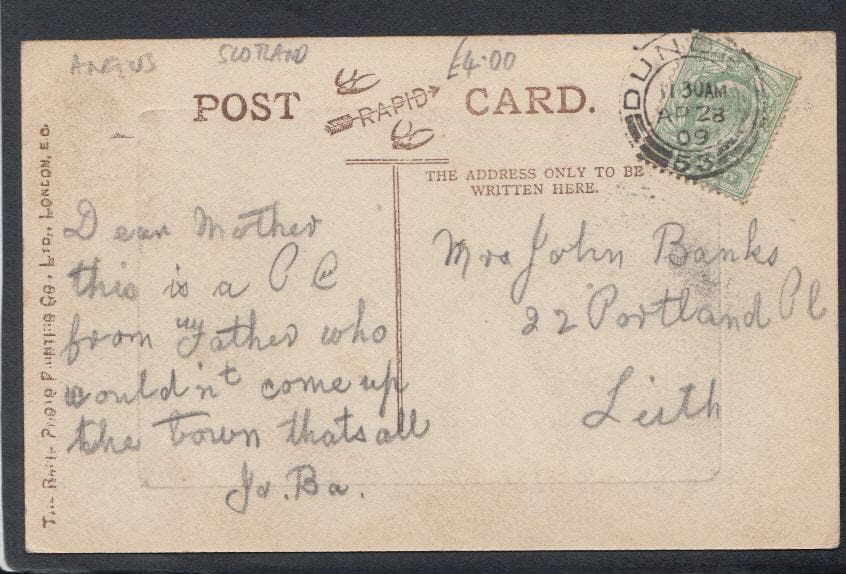 ANGUS SCOTLAND £4.00
POST RAPID CARD.
DUN
11 30AM
AP 28
09
53
THE ADDRESS ONLY TO BE
WRITTEN HERE.
THE RAPID PHOTO PRINTING CO., LTD., LONDON, E.C.
Dear Mother
this is a P C
from my Father who
wouldn't come up
the town thats all
Jo. Ba.
Mrs John Banks
22 Portland Pl
Leith